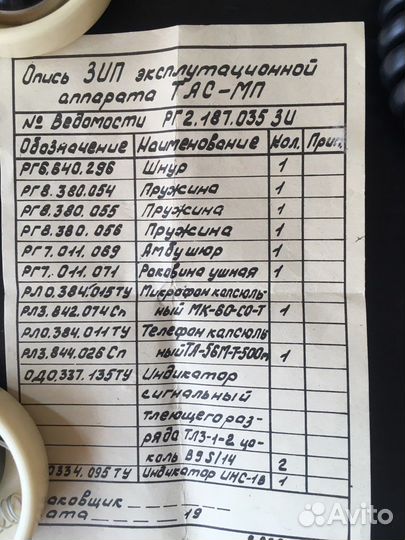 Опись ЗИП эксплутационной
аппарата ТАС-МП
№ Ведомости РГ2.187.035 ЗИ
Обозначение Наименование Кол. Прим.
РГ6.640.296 Шнур 1
РГ8.380.054 Пружина 1
РГ8.380.055 Пружина 1
РГ8.380.056 Пружина 1
РГ7.011.069 Амбушюр 1
РГ7.011.071 Раковина ушная 1
РЛ0.384.015ТУ Микрофон капсюль-
РЛ3.842.074Сп ный МК-60-СО-Т 1
РЛ0.384.011ТУ Телефон капсюль
РЛ3.844.026Сп ный ТА-56М-Т-500м 1
ОД0.337.135ТУ Индикатор
сигнальный
тлеющего раз-
ряда ТЛЗ-1-2 цо-
коль B9S/14 2
0334.095ТУ Индикатор ИНС-1В 1
аковщик
ата 19
Avito